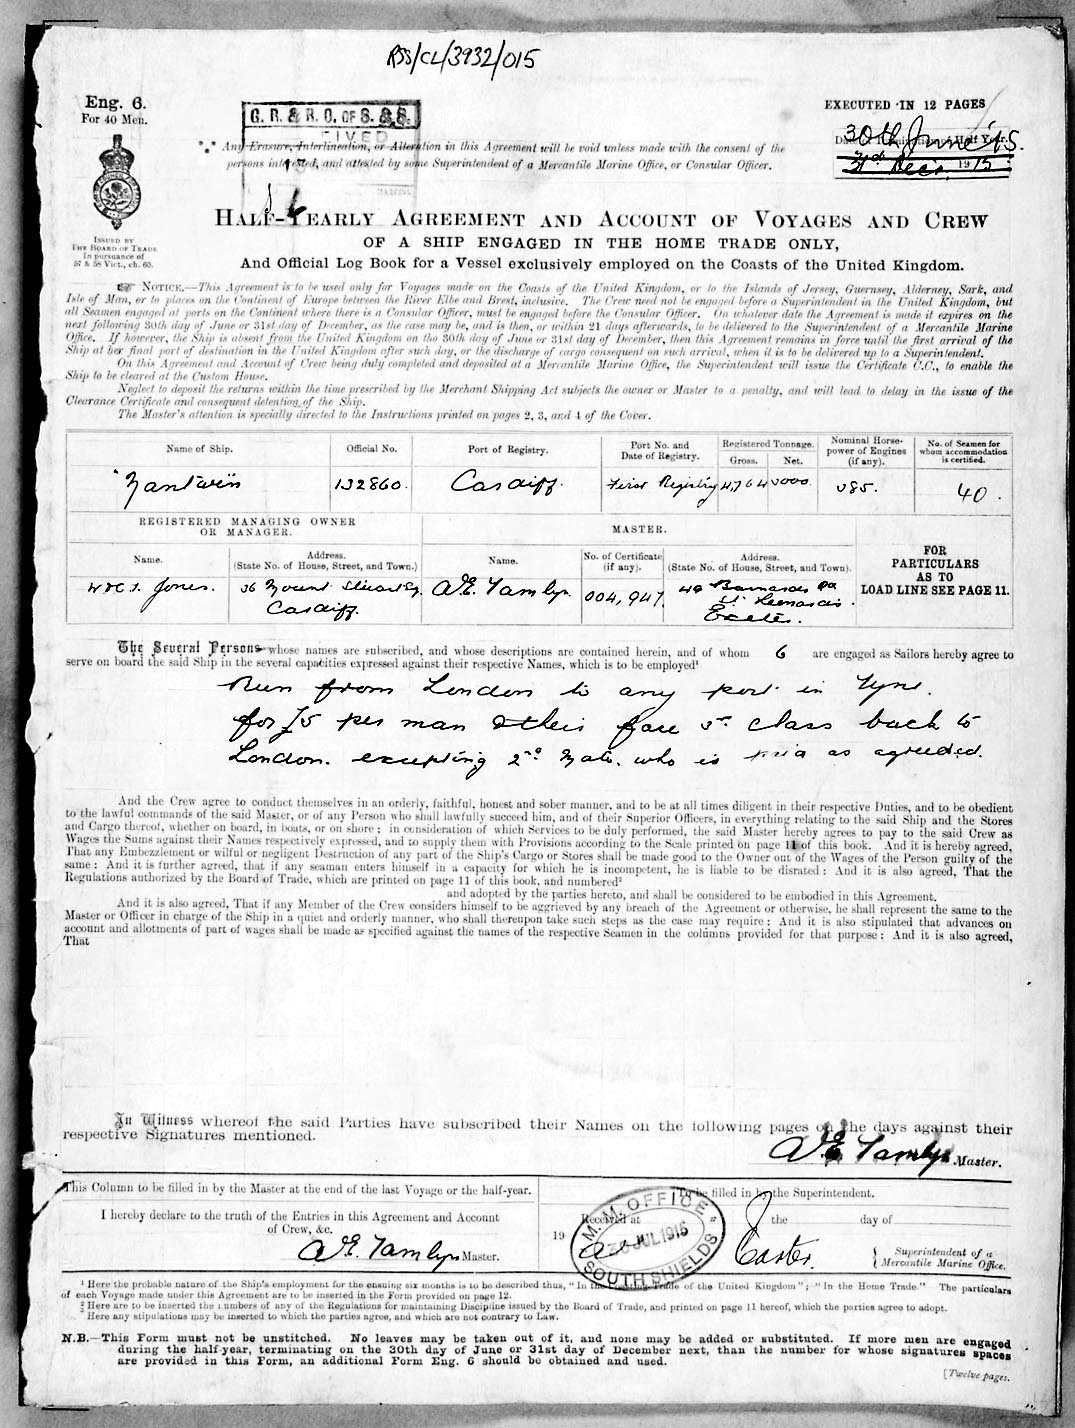 RSS/CL/3932/015
Eng. 6.
For 40 Men.
G. R. & R. O. OF S. & S.
EXECUTED IN 12 PAGES
30th June '15.
31st Decr. 1915
Any Erasure, Interlineation, or Alteration in this Agreement will be void unless made with the consent of the
persons interested, and attested by some Superintendent of a Mercantile Marine Office, or Consular Officer.
ISSUED BY
THE BOARD OF TRADE
In pursuance of
57 & 58 Vict., ch. 60.
HALF-YEARLY AGREEMENT AND ACCOUNT OF VOYAGES AND CREW
OF A SHIP ENGAGED IN THE HOME TRADE ONLY,
And Official Log Book for a Vessel exclusively employed on the Coasts of the United Kingdom.
NOTICE.—This Agreement is to be used only for Voyages made on the Coasts of the United Kingdom, or to the Islands of Jersey, Guernsey, Alderney, Sark, and
Isle of Man, or to places on the Continent of Europe between the River Elbe and Brest, inclusive. The Crew need not be engaged before a Superintendent in the United Kingdom, but
all Seamen engaged at ports on the Continent where there is a Consular Officer, must be engaged before the Consular Officer. On whatever date the Agreement is made it expires on the
next following 30th day of June or 31st day of December, as the case may be, and is then, or within 21 days afterwards, to be delivered to the Superintendent of a Mercantile Marine
Office. If however, the Ship is absent from the United Kingdom on the 30th day of June or 31st day of December, then this Agreement remains in force until the first arrival of the
Ship at her final port of destination in the United Kingdom after such day, or the discharge of cargo consequent on such arrival, when it is to be delivered up to a Superintendent.
On this Agreement and Account of Crew being duly completed and deposited at a Mercantile Marine Office, the Superintendent will issue the Certificate C.C., to enable the
Ship to be cleared at the Custom House.
Neglect to deposit the returns within the time prescribed by the Merchant Shipping Act subjects the owner or Master to a penalty, and will lead to delay in the issue of the
Clearance Certificate and consequent detention of the Ship.
The Master's attention is specially directed to the Instructions printed on pages 2, 3, and 4 of the Cover.
Name of Ship. Official No. Port of Registry. Port No. and Date of Registry. Registered Tonnage. Gross. Net. Nominal Horse-power of Engines (if any). No. of Seamen for whom accommodation is certified.
132860. Cardiff. First Registry 4,764 3000. 385. 40.
REGISTERED MANAGING OWNER OR MANAGER. MASTER.
Name. Address. (State No. of House, Street, and Town.) Name. No. of Certificate (if any). Address. (State No. of House, Street, and Town).
FOR PARTICULARS AS TO LOAD LINE SEE PAGE 11.
W & C. T. Jones. 36 Mount Stuart Sq. Cardiff. A.E. Tamlyn. 004,947. St Leonards. Exeter.
The Several Persons whose names are subscribed, and whose descriptions are contained herein, and of whom 6 are engaged as Sailors hereby agree to
serve on board the said Ship in the several capacities expressed against their respective Names, which is to be employed¹
Run from London to any port in Tyne.
for £5 per man & their fare 3rd class back to
London. excepting 2nd Mate. who is paid as agreeded.
And the Crew agree to conduct themselves in an orderly, faithful, honest and sober manner, and to be at all times diligent in their respective Duties, and to be obedient
to the lawful commands of the said Master, or of any Person who shall lawfully succeed him, and of their Superior Officers, in everything relating to the said Ship and the Stores
and Cargo thereof, whether on board, in boats, or on shore; in consideration of which Services to be duly performed, the said Master hereby agrees to pay to the said Crew as
Wages the Sums against their Names respectively expressed, and to supply them with Provisions according to the Scale printed on page 11 of this book. And it is hereby agreed,
That any Embezzlement or wilful or negligent Destruction of any part of the Ship's Cargo or Stores shall be made good to the Owner out of the Wages of the Person guilty of the
same: And it is further agreed, that if any seaman enters himself in a capacity for which he is incompetent, he is liable to be disrated: And it is also agreed, That the
Regulations authorized by the Board of Trade, which are printed on page 11 of this book, and numbered²
and adopted by the parties hereto, and shall be considered to be embodied in this Agreement.
And it is also agreed, That if any Member of the Crew considers himself to be aggrieved by any breach of the Agreement or otherwise, he shall represent the same to the
Master or Officer in charge of the Ship in a quiet and orderly manner, who shall thereupon take such steps as the case may require: And it is also stipulated that advances on
account and allotments of part of wages shall be made as specified against the names of the respective Seamen in the columns provided for that purpose: And it is also agreed,
That
In Witness whereof the said Parties have subscribed their Names on the following pages on the days against their
respective Signatures mentioned.
A.E. Tamlyn Master.
This Column to be filled in by the Master at the end of the last Voyage or the half-year.
I hereby declare to the truth of the Entries in this Agreement and Account
of Crew, &c.
A.E. Tamlyn Master.
To be filled in by the Superintendent.
Received at the day of
19
M. M. OFFICE
JUL 1915
SOUTH SHIELDS
Superintendent of a
Mercantile Marine Office.
¹ Here the probable nature of the Ship's employment for the ensuing six months is to be described thus, "In the Coasting Trade of the United Kingdom"; "In the Home Trade." The particulars
of each Voyage made under this Agreement are to be inserted in the Form provided on page 12.
² Here are to be inserted the numbers of any of the Regulations for maintaining Discipline issued by the Board of Trade, and printed on page 11 hereof, which the parties agree to adopt.
Here any stipulations may be inserted to which the parties agree, and which are not contrary to Law.
N.B.—This Form must not be unstitched. No leaves may be taken out of it, and none may be added or substituted. If more men are engaged
during the half-year, terminating on the 30th day of June or 31st day of December next, than the number for whose signatures spaces
are provided in this Form, an additional Form Eng. 6 should be obtained and used.
[Twelve pages.